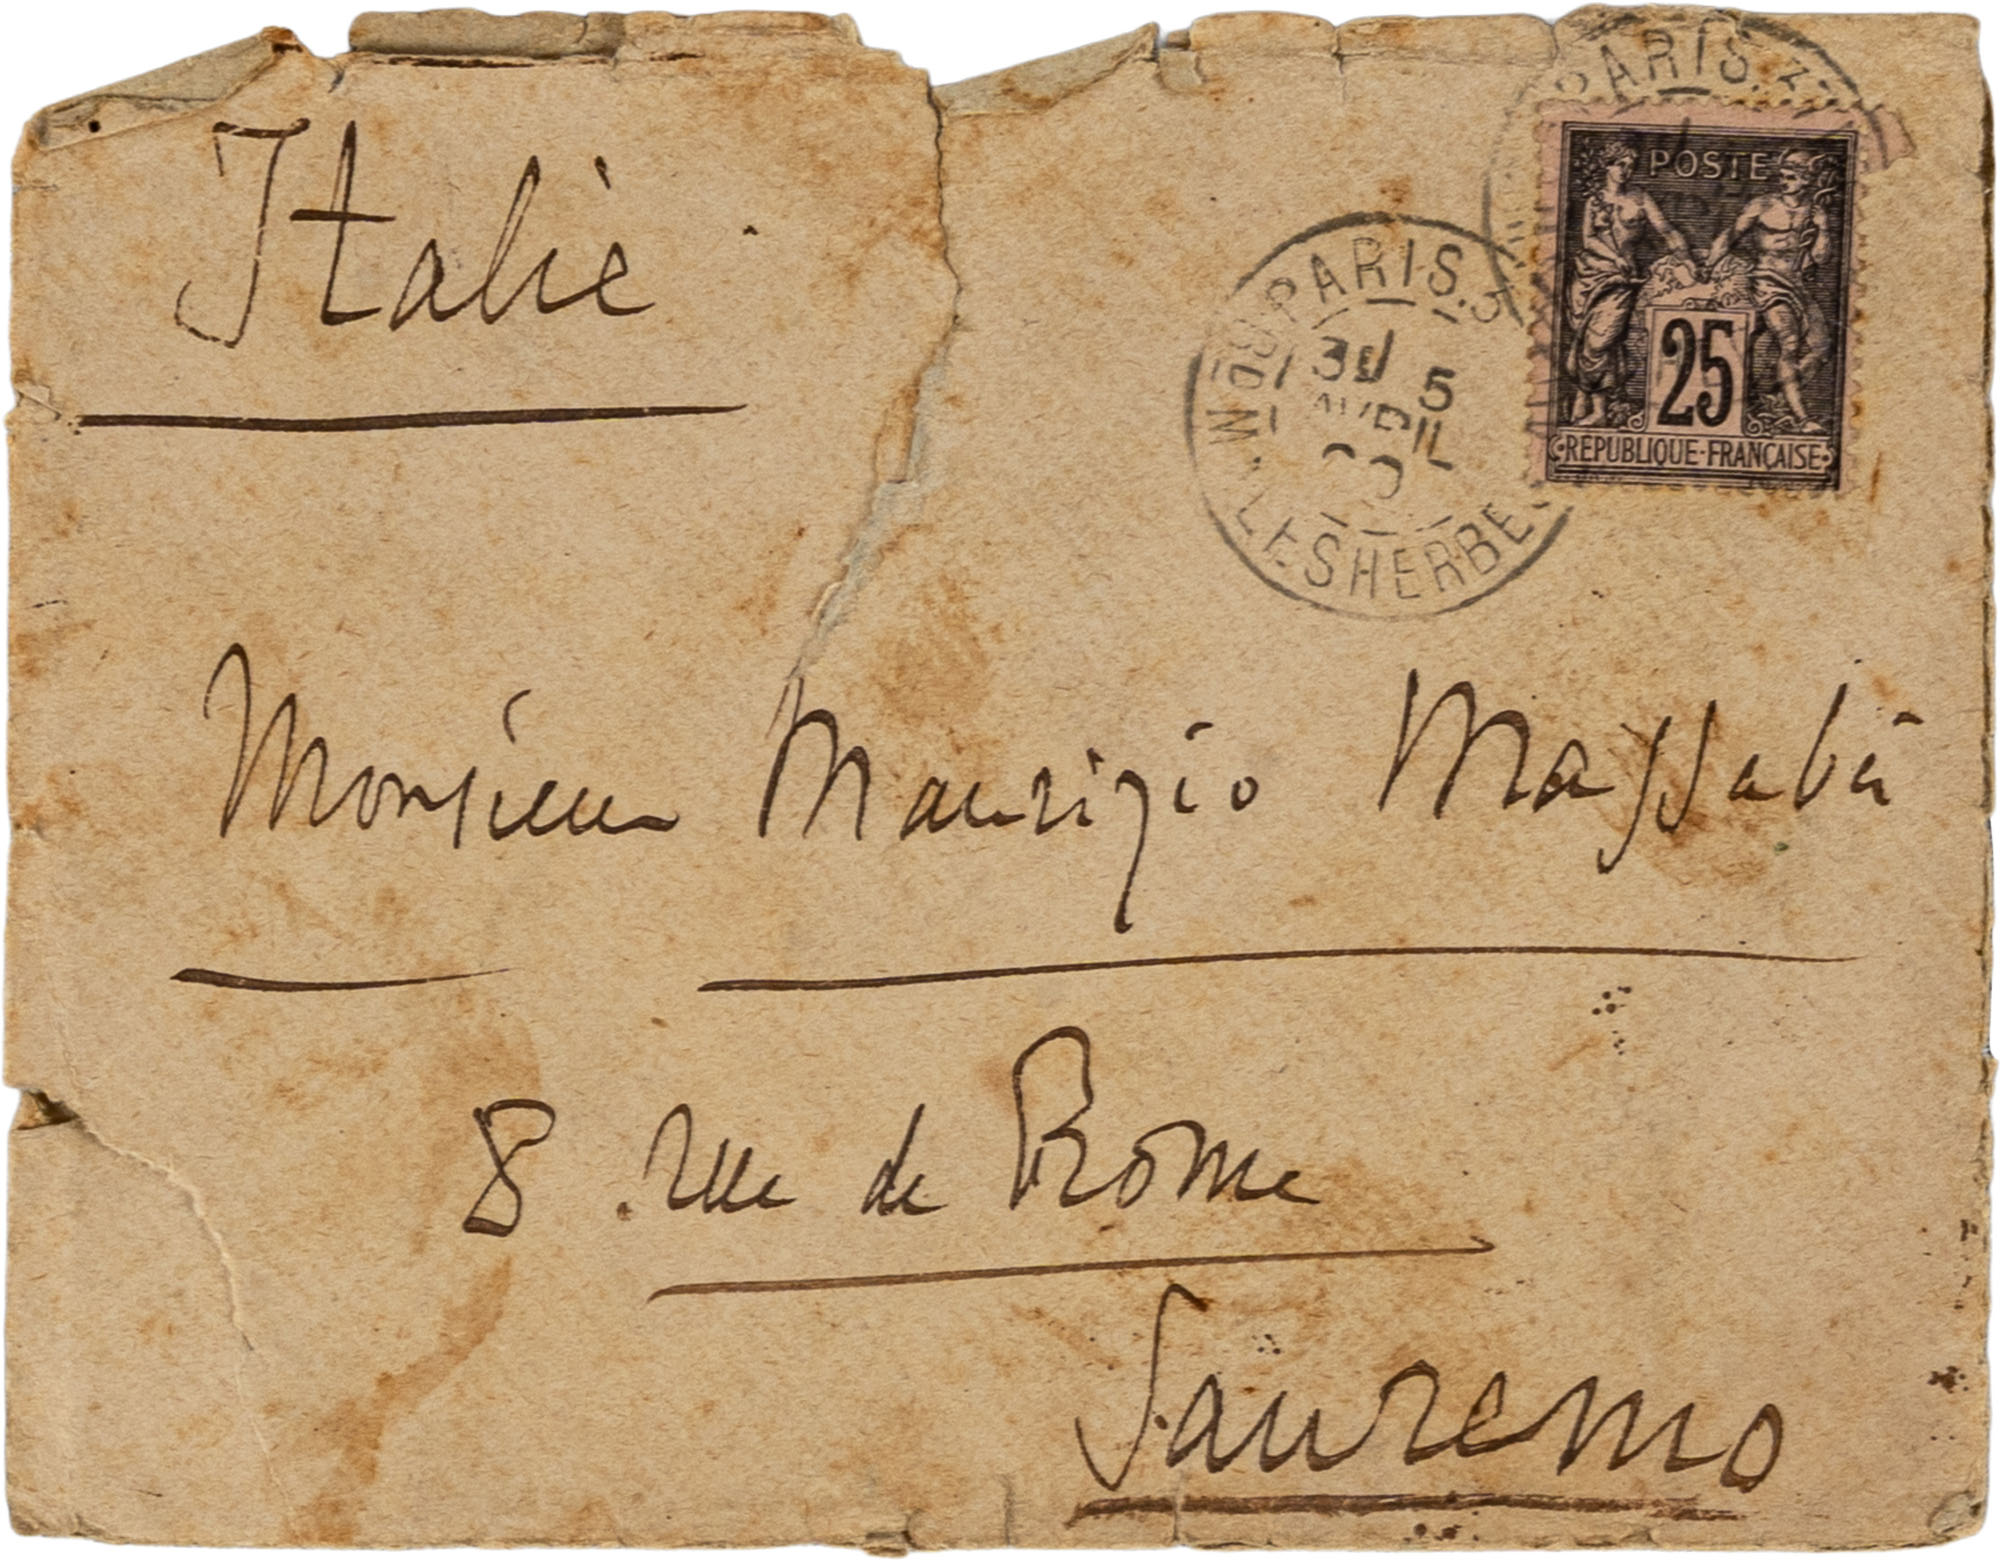 PARIS. 3
POSTE
25
REPUBLIQUE-FRANÇAISE
PARIS. 3
5
AVRIL
Bd MALESHERBE
Italie
Monsieur Maurizio Massabò
8. rue de Rome
Sanremo